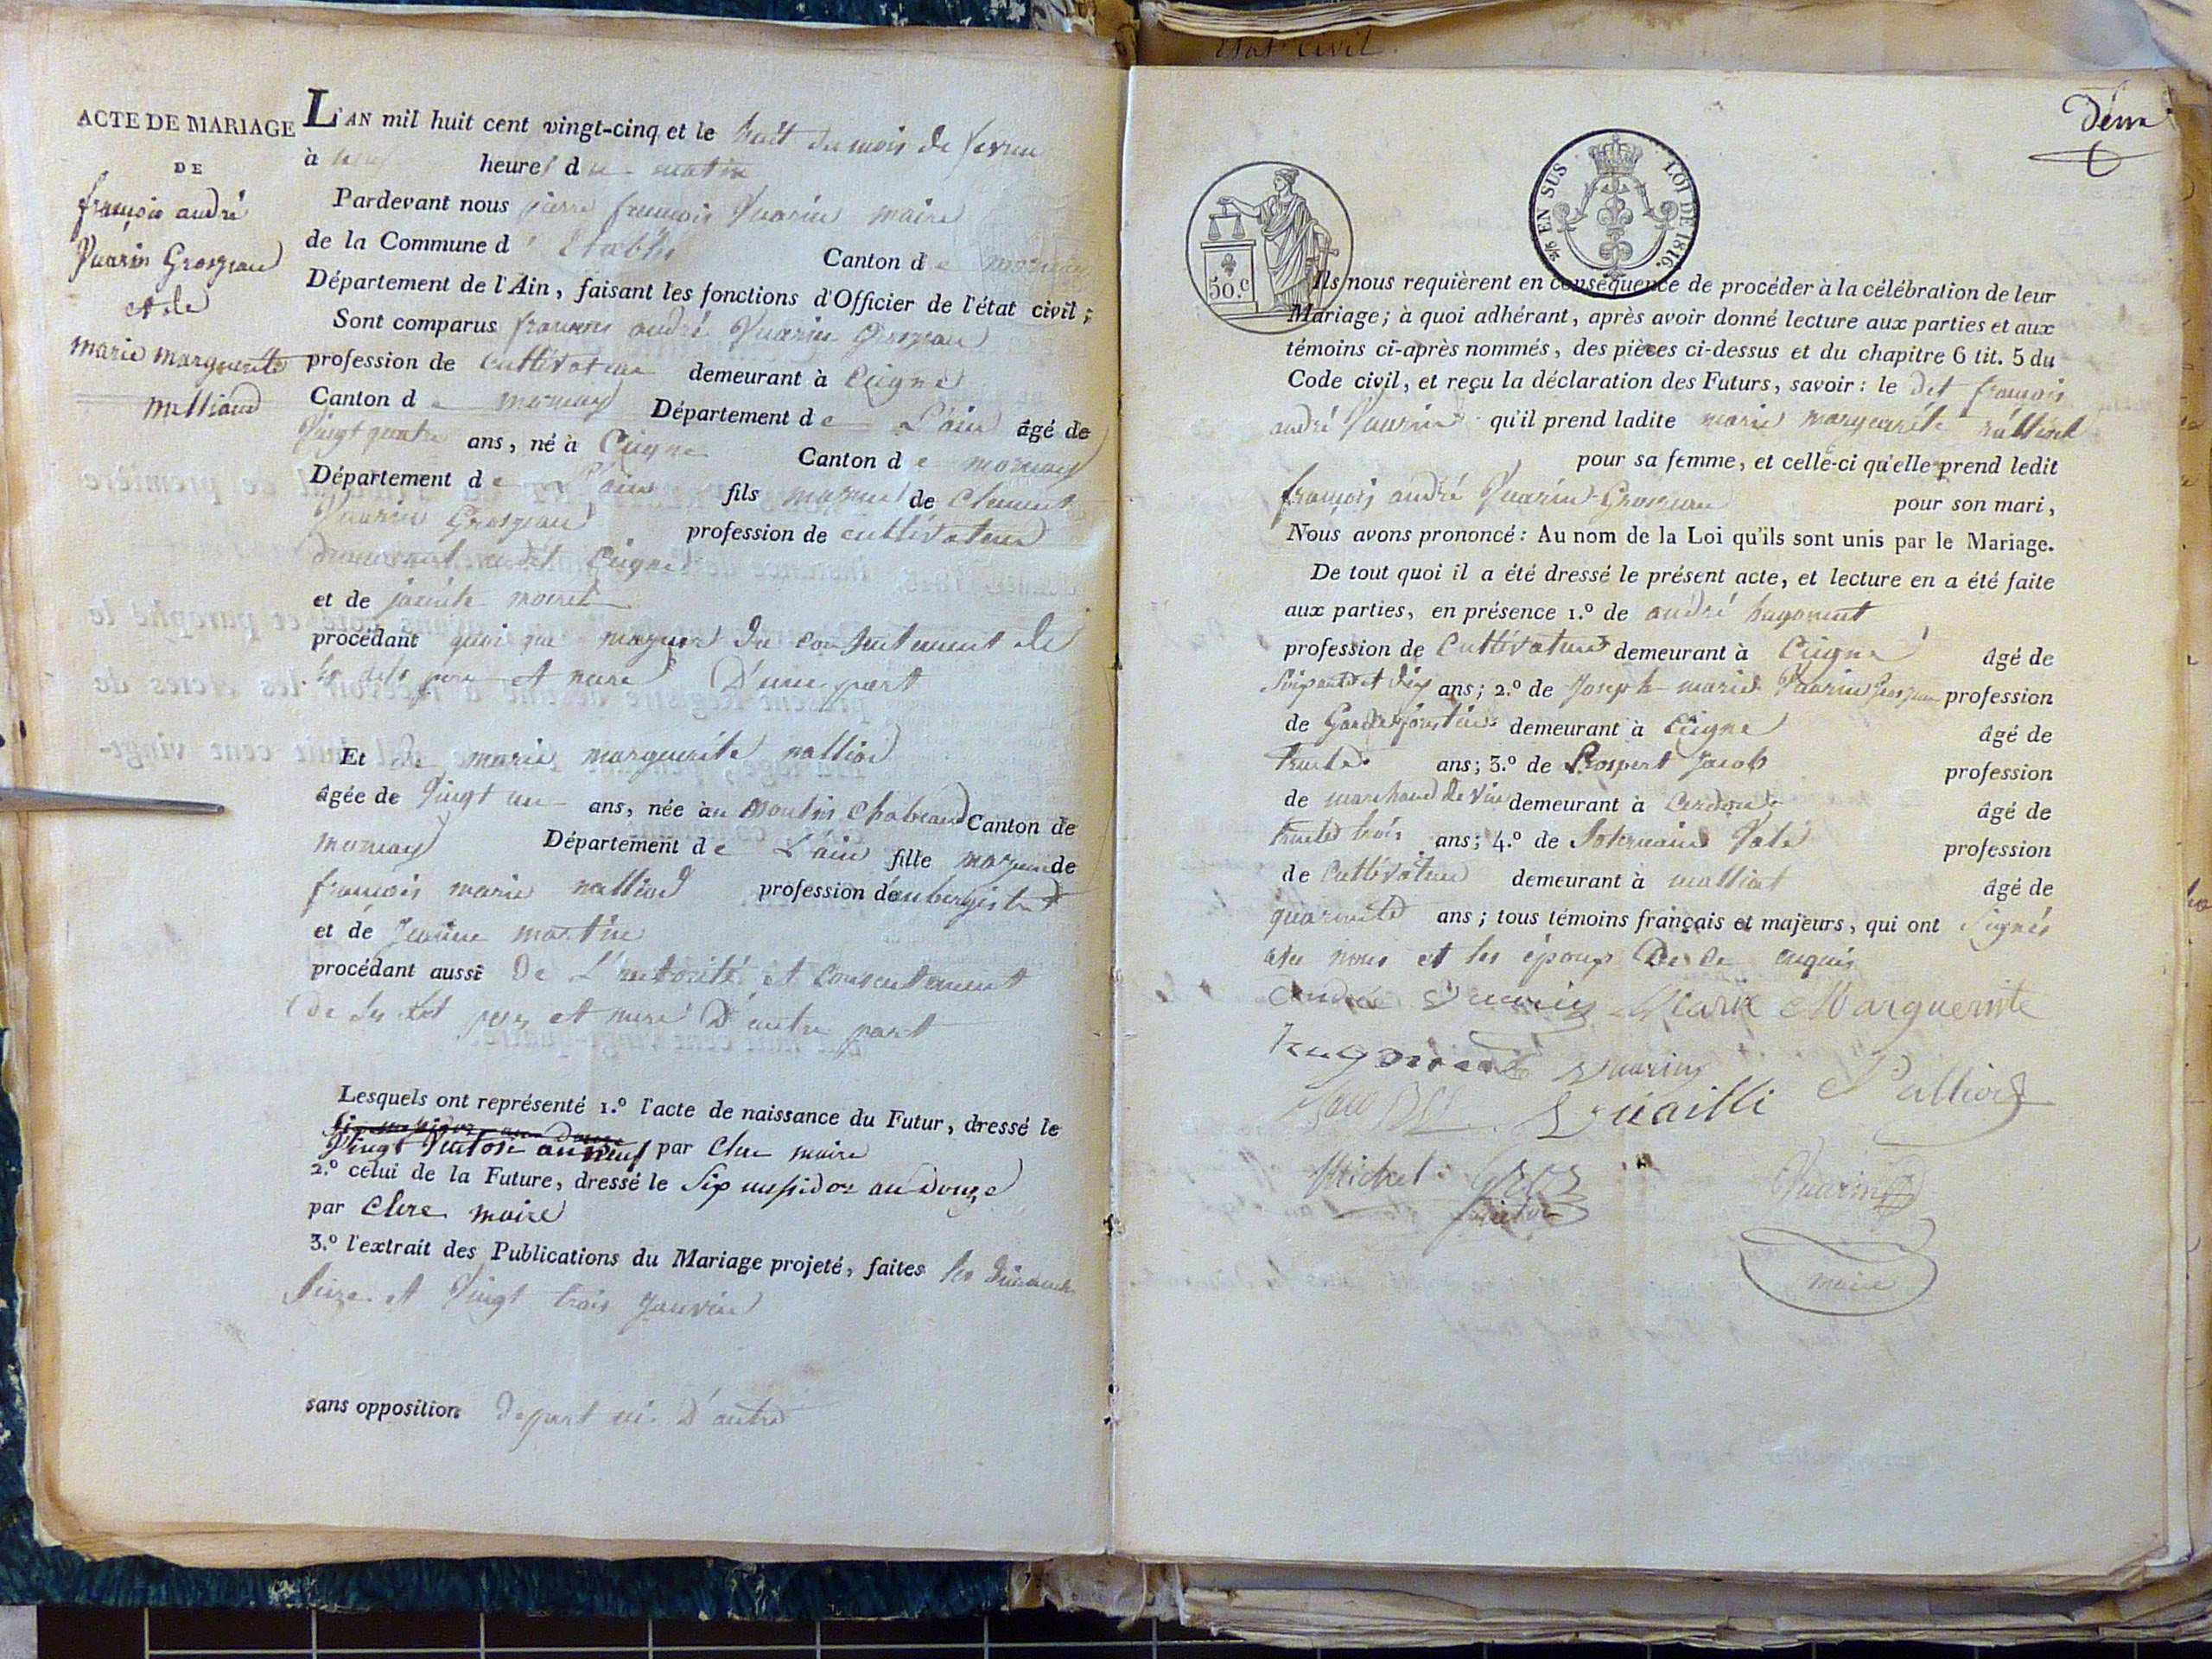 ACTE DE MARIAGE
DE
françois andré
Vuarin Grosjean
et de
marie marguerite
L'AN mil huit cent vingt-cinq et le huit du mois de
à heures du matin
Pardevant nous pierre françois Vuarin maire
de la Commune d' Canton de
Département de l'Ain, faisant les fonctions d'Officier de l'état civil;
Sont comparus françois andré Vuarin Grosjean
profession de Cultivateur demeurant à Ceigne
Canton de mornay Département de L'ain âgé de
Vingt quatre ans, né à Ceigne Canton de mornay
Département de L'ain fils majeur de Clement
Vuarin Grosjean profession de cultivateur
demeurant audit Ceigne
et de
procédant quoi que majeur du consentement de
ses dits pere et mere D'une part
Et De marie marguerite
âgée de Vingt un ans, née au moulin Chabraud Canton de
mornay Département de L'ain fille majeure de
françois marie profession d'aubergiste
et de martin
procédant aussi De L'autorité et consentement
De ses dit pere et mere D'autre part
Lesquels ont représenté 1.º l'acte de naissance du Futur, dressé le
Vingt Ventose an neuf par Clerc maire
2.º celui de la Future, dressé le Six messidor an douze
par Clerc maire
3.º l'extrait des Publications du Mariage projeté, faites les dimanches
Seize et Vingt trois janvier
sans opposition de part ni D'autre
Etat civil
EN SUS LOI DE 1816.
50.c
Ils nous requièrent en conséquence de procéder à la célébration de leur
Mariage; à quoi adhérant, après avoir donné lecture aux parties et aux
témoins ci-après nommés, des pièces ci-dessus et du chapitre 6 tit. 5 du
Code civil, et reçu la déclaration des Futurs, savoir: le dit françois
andré Vuarin qu'il prend ladite marie marguerite
pour sa femme, et celle-ci qu'elle prend ledit
françois andré Vuarin Grosjean pour son mari,
Nous avons prononcé: Au nom de la Loi qu'ils sont unis par le Mariage.
De tout quoi il a été dressé le présent acte, et lecture en a été faite
aux parties, en présence 1.º de andré hugonnet
profession de Cultivateur demeurant à Ceigne âgé de
Soixante et dix ans; 2.º de Joseph marie Vuarin Grosjean profession
de Garde forestier demeurant à Ceigne âgé de
trente ans; 3.º de Prospert Jacob profession
de marchand de vin demeurant à Cerdon âgé de
trente trois ans; 4.º de profession
de Cultivateur demeurant à âgé de
quarante ans; tous témoins français et majeurs, qui ont signés
avec nous et les époux De ce enquis
André Vuarin Marie Marguerite
hugonnet Vuarin
Michel
Vuarin
maire